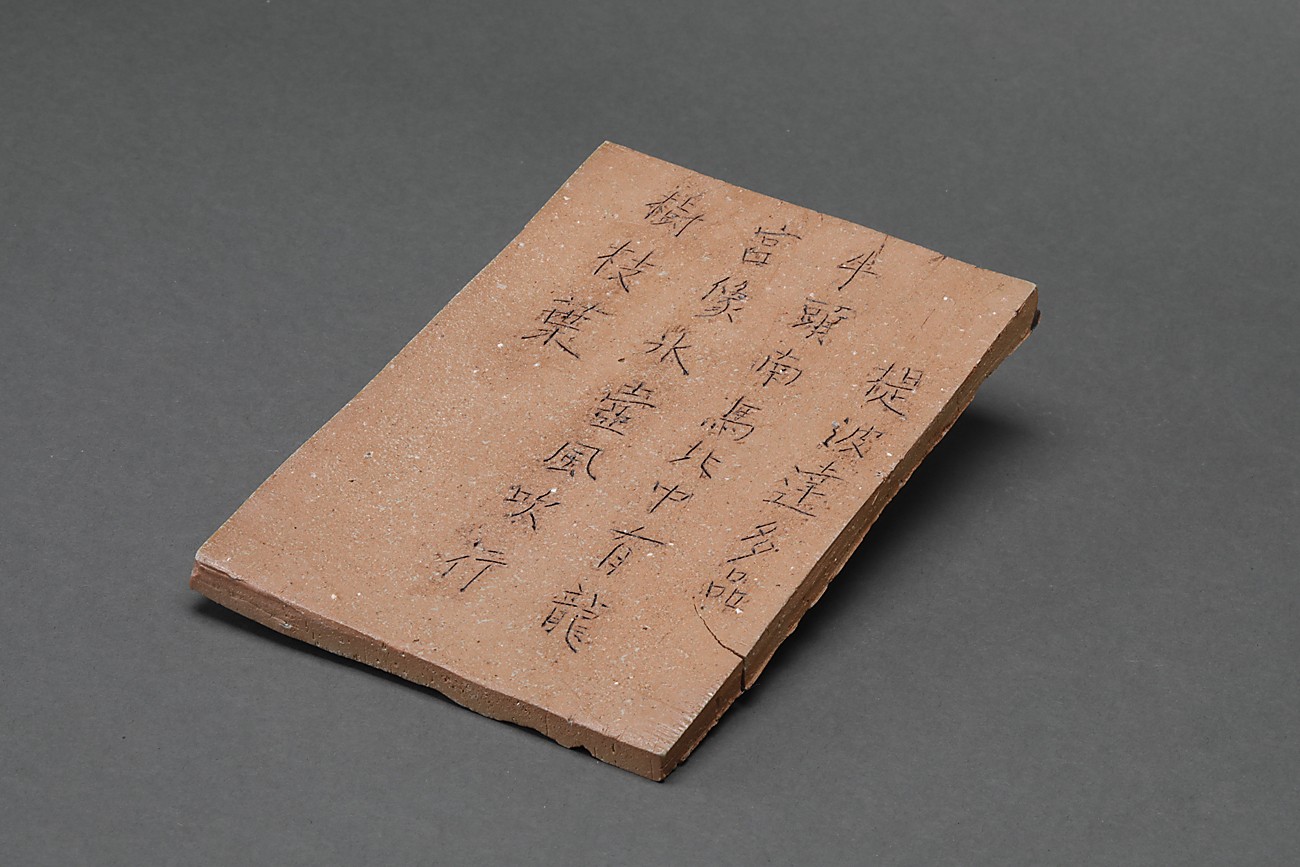 提波達多品
牛頭南馬北中有龍
宮像氷壷風吹行
樹枝葉